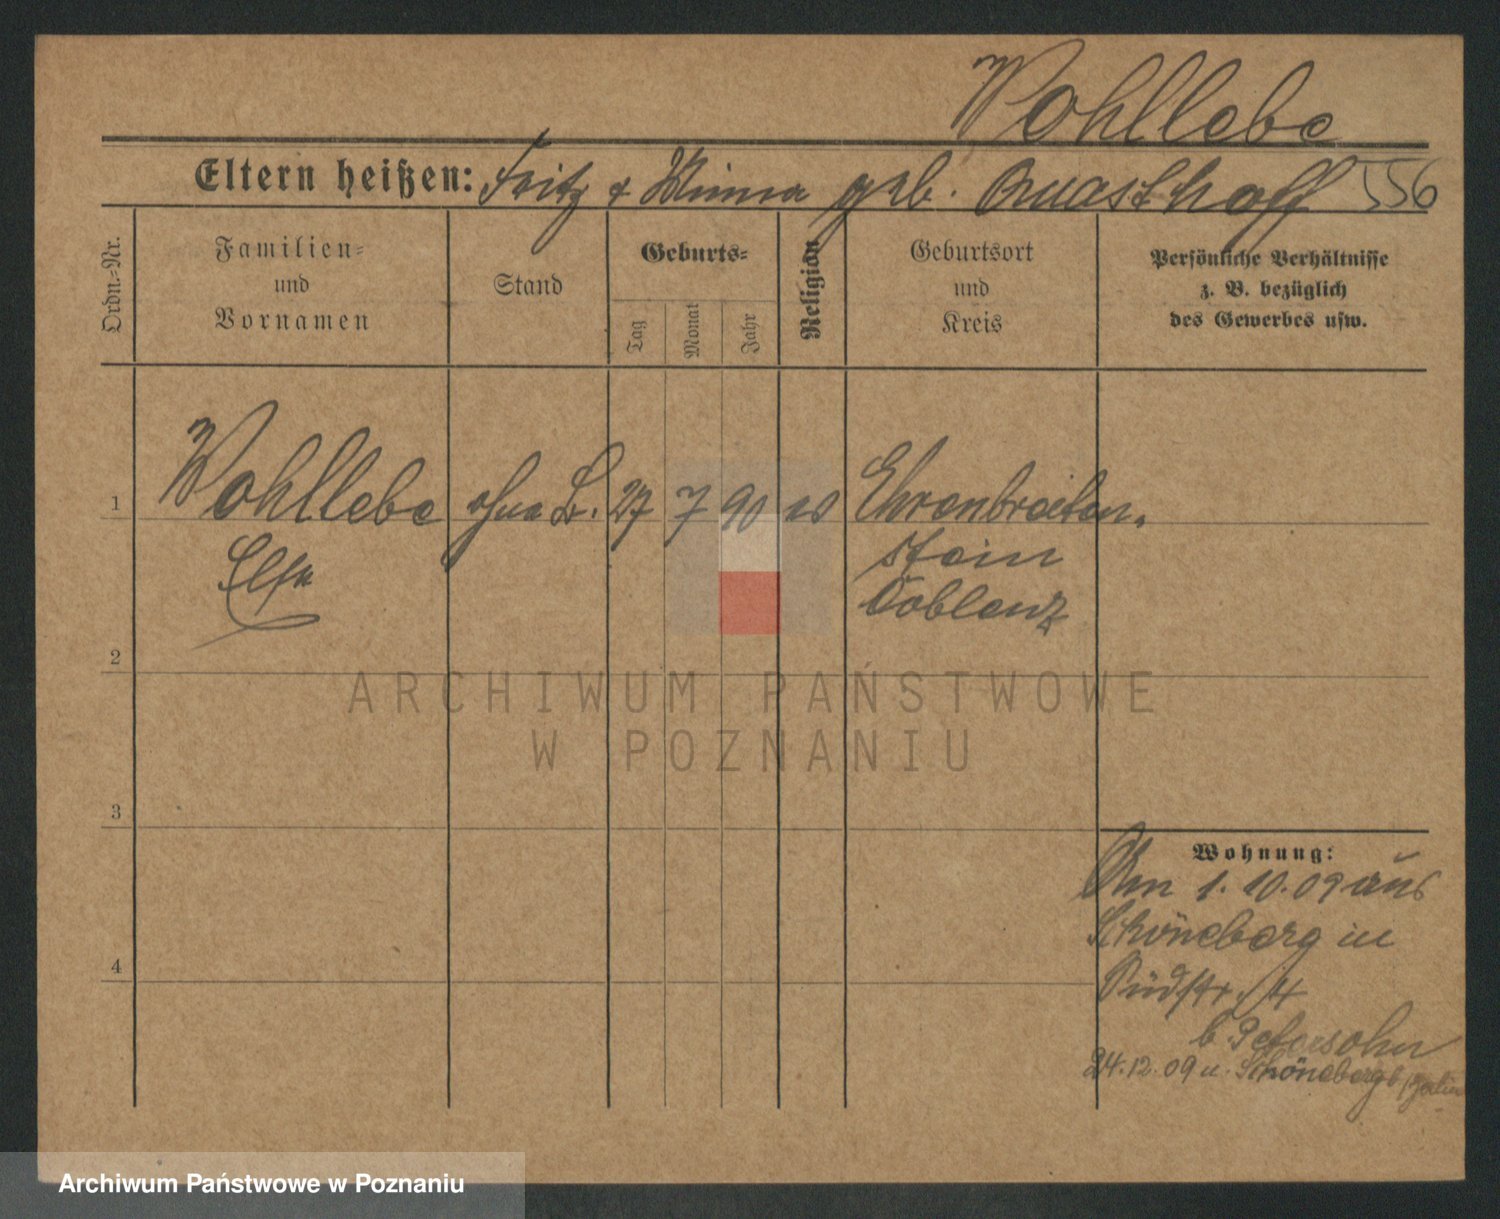 Wohllebe
Eltern heißen: Fritz & Minna geb. Quasthoff 556
Ordn.=Nr.
Familien=
und
Vornamen
Stand
Geburts=
Tag
Monat
Jahr
Religion
Geburtsort
und
Kreis
Persönliche Verhältnisse
z. B. bezüglich
des Gewerbes usw.
1 Wohllebe ohne 27 7 90 Ehrenbreiten-
Else stein
Coblenz
2
3
4
Wohnung:
Am 1.10.09 aus
Schöneberg in
Südstr. 4
b Petersohn
24.12.09 n. Schöneberg b/
ARCHIWUM PAŃSTWOWE
W POZNANIU
Archiwum Państwowe w Poznaniu